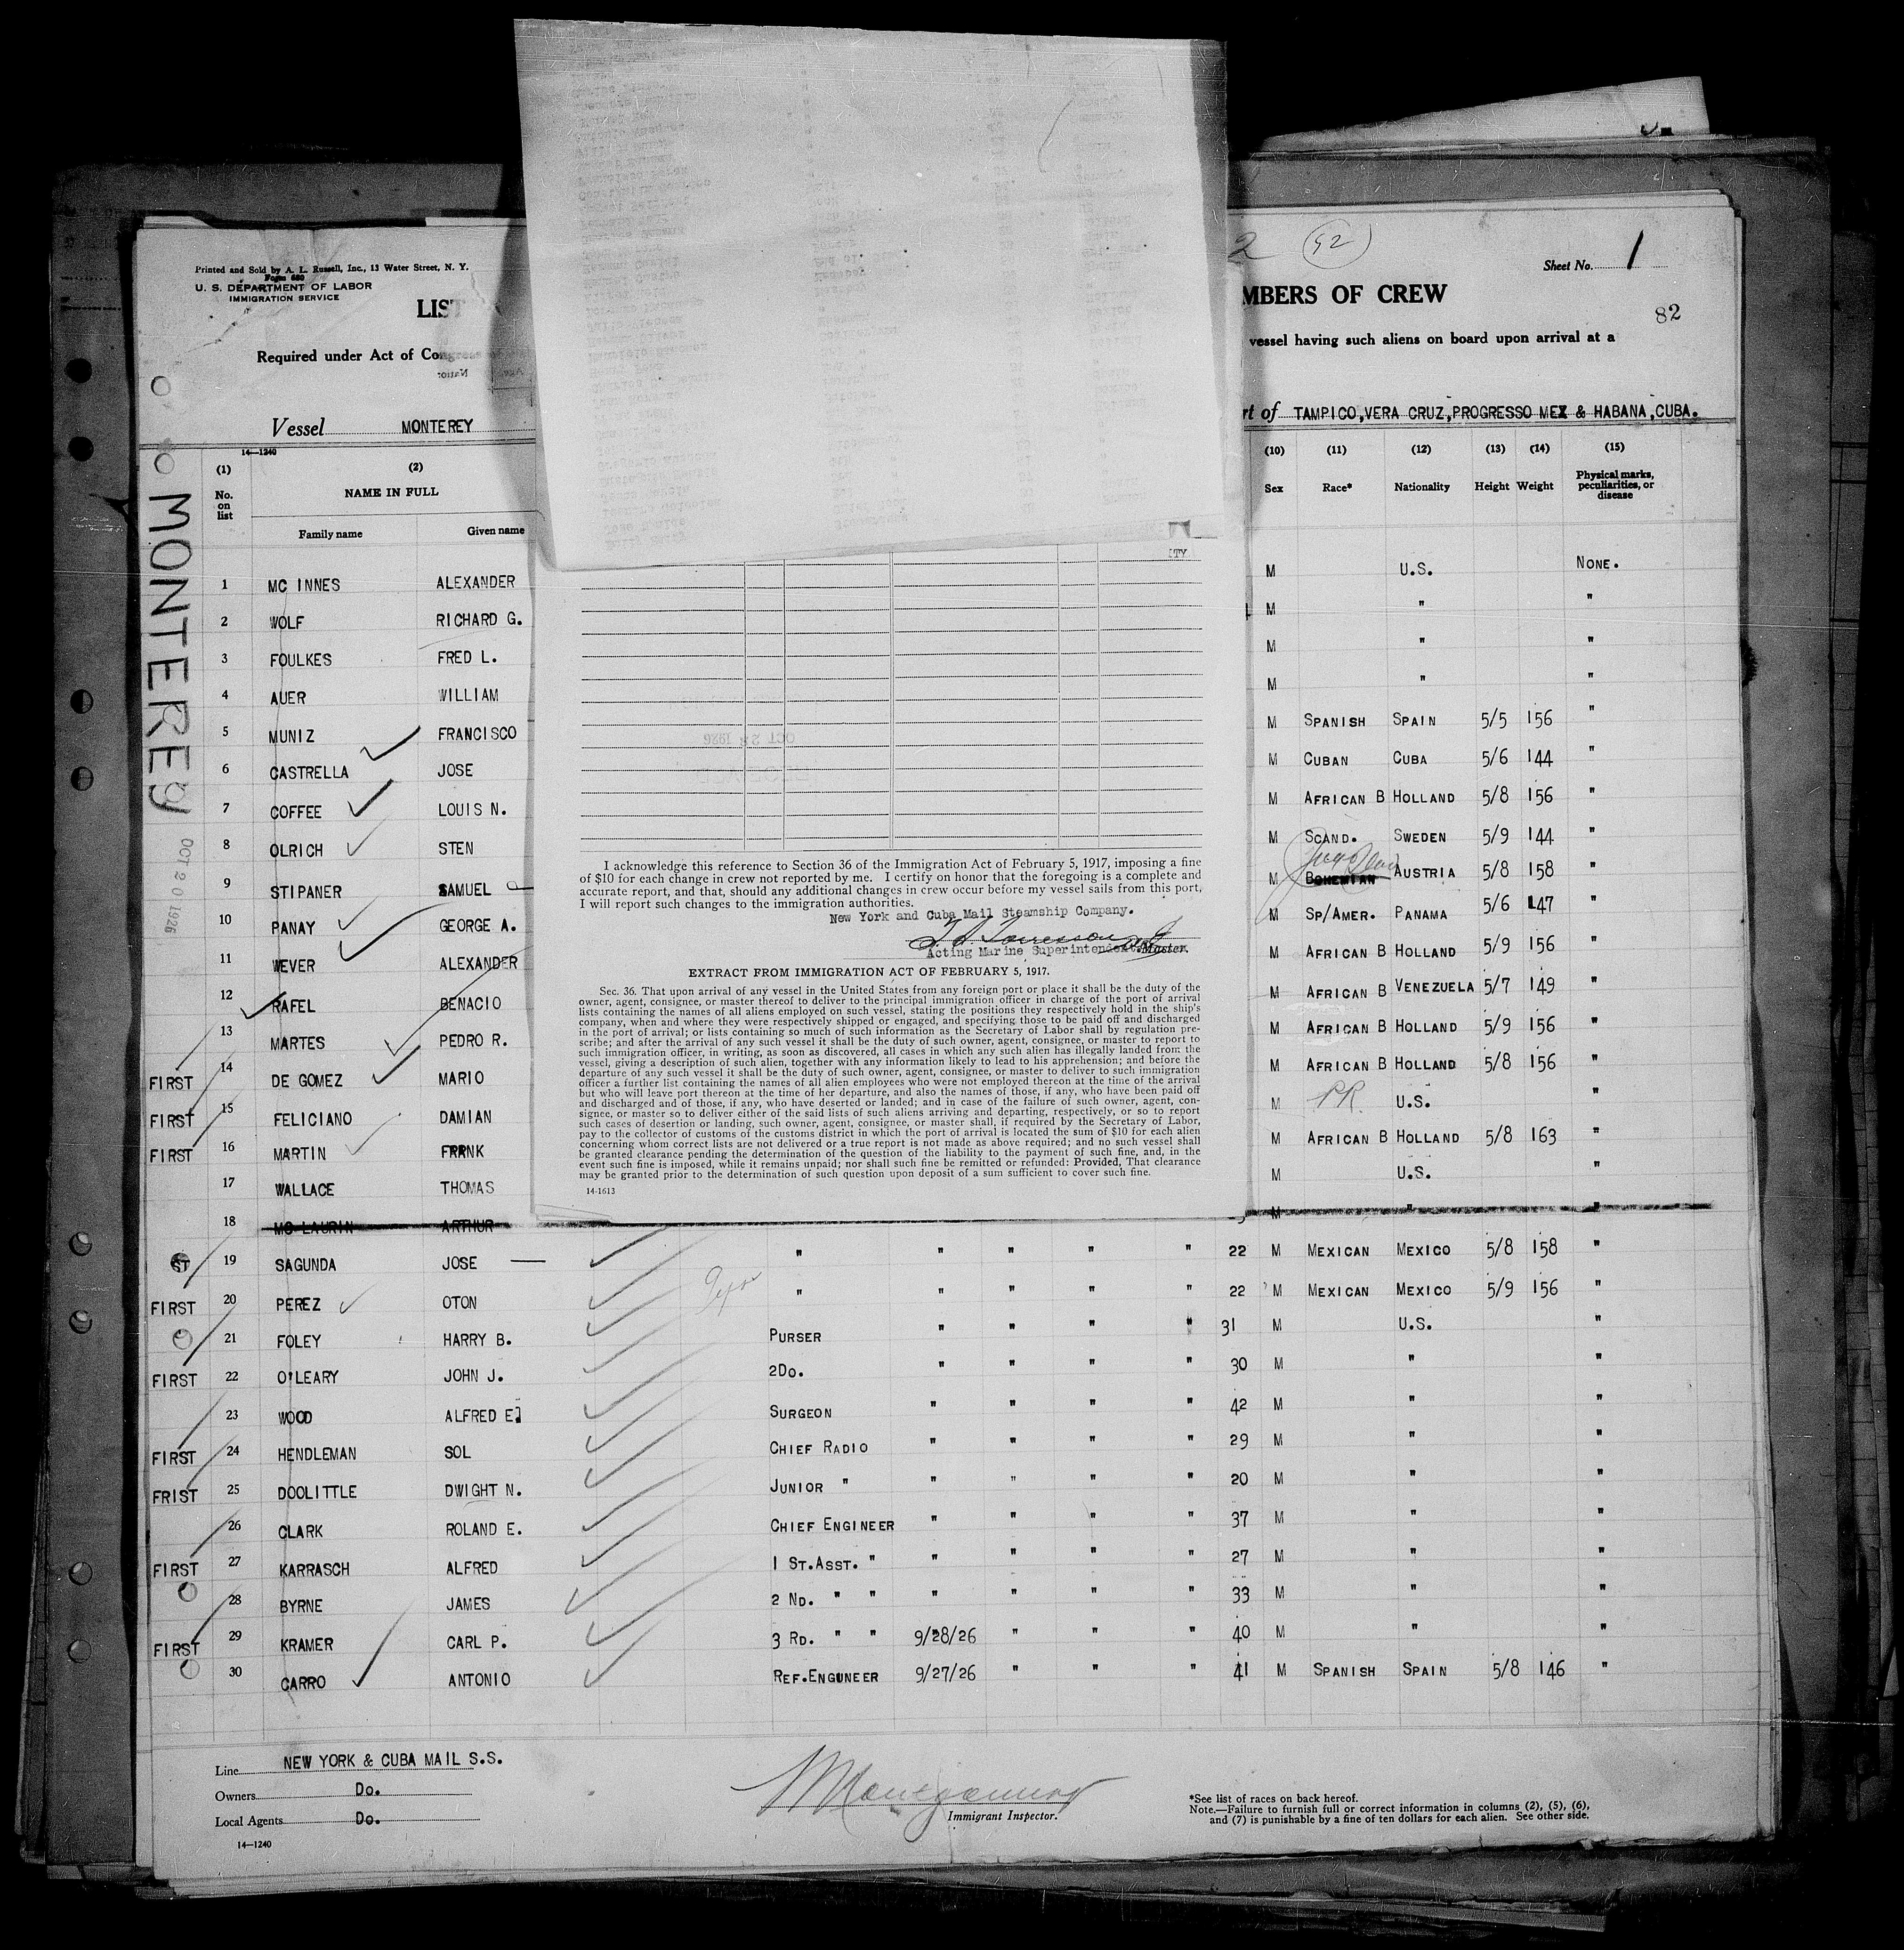 2 (92)
Sheet No. 1
Printed and Sold by A. L. Russell, Inc., 13 Water Street, N. Y.
Form 680
U. S. DEPARTMENT OF LABOR
IMMIGRATION SERVICE
LIST
MBERS OF CREW
82
Required under Act of Congress
vessel having such aliens on board upon arrival at a
Vessel MONTEREY
rt of TAMPICO, VERA CRUZ, PROGRESSO MEX & HABANA, CUBA.
14—1240
(1) (2) (10) (11) (12) (13) (14) (15)
No. on list NAME IN FULL Sex Race* Nationality Height Weight Physical marks, peculiarities, or disease
Family name Given name
MONTEREY
OCT 20 1926
ITY
1 MC INNES ALEXANDER M U.S. NONE.
2 WOLF RICHARD G. M " "
3 FOULKES FRED L. M " "
4 AUER WILLIAM M " "
5 MUNIZ FRANCISCO M SPANISH SPAIN 5/5 156 "
6 CASTRELLA JOSE M CUBAN CUBA 5/6 144 "
7 COFFEE LOUIS N. M AFRICAN B HOLLAND 5/8 156 "
8 OLRICH STEN M SCAND. SWEDEN 5/9 144 "
9 STIPANER SAMUEL M BOHEMIAN AUSTRIA 5/8 158 "
10 PANAY GEORGE A. M SP/AMER. PANAMA 5/6 147 "
11 WEVER ALEXANDER M AFRICAN B HOLLAND 5/9 156 "
12 RAFEL BENACIO M AFRICAN B VENEZUELA 5/7 149 "
13 MARTES PEDRO R. M AFRICAN B HOLLAND 5/9 156 "
FIRST 14 DE GOMEZ MARIO M AFRICAN B HOLLAND 5/8 156 "
FIRST 15 FELICIANO DAMIAN M PR U.S. "
FIRST 16 MARTIN FRANK M AFRICAN B HOLLAND 5/8 163 "
17 WALLACE THOMAS M U.S. "
18 MC LAURIN ARTHUR M " "
ST 19 SAGUNDA JOSE " " " " " 22 M MEXICAN MEXICO 5/8 158 "
FIRST 20 PEREZ OTON " " " " " 22 M MEXICAN MEXICO 5/9 156 "
21 FOLEY HARRY B. PURSER " " " " 31 M U.S. "
FIRST 22 O'LEARY JOHN J. 2DO. " " " " 30 M " "
23 WOOD ALFRED E. SURGEON " " " " 42 M " "
FIRST 24 HENDLEMAN SOL CHIEF RADIO " " " " 29 M " "
FRIST 25 DOOLITTLE DWIGHT N. JUNIOR " " " " " 20 M " "
26 CLARK ROLAND E. CHIEF ENGINEER " " " " 37 M " "
FIRST 27 KARRASCH ALFRED 1 ST.ASST. " " " " " 27 M " "
28 BYRNE JAMES 2 ND. " " " " " " 33 M " "
FIRST 29 KRAMER CARL P. 3 RD. " " 9/28/26 " " " 40 M " "
30 CARRO ANTONIO REF.ENGUNEER 9/27/26 " " " 41 M SPANISH SPAIN 5/8 146 "
I acknowledge this reference to Section 36 of the Immigration Act of February 5, 1917, imposing a fine
of $10 for each change in crew not reported by me. I certify on honor that the foregoing is a complete and
accurate report, and that, should any additional changes in crew occur before my vessel sails from this port,
I will report such changes to the immigration authorities.
New York and Cuba Mail Steamship Company.
Acting Marine Superintendent. Master.
EXTRACT FROM IMMIGRATION ACT OF FEBRUARY 5, 1917.
Sec. 36. That upon arrival of any vessel in the United States from any foreign port or place it shall be the duty of the
owner, agent, consignee, or master thereof to deliver to the principal immigration officer in charge of the port of arrival
lists containing the names of all aliens employed on such vessel, stating the positions they respectively hold in the ship's
company, when and where they were respectively shipped or engaged, and specifying those to be paid off and discharged
in the port of arrival; or lists containing so much of such information as the Secretary of Labor shall by regulation pre-
scribe; and after the arrival of any such vessel it shall be the duty of such owner, agent, consignee, or master to report to
such immigration officer, in writing, as soon as discovered, all cases in which any such alien has illegally landed from the
vessel, giving a description of such alien, together with any information likely to lead to his apprehension; and before the
departure of any such vessel it shall be the duty of such owner, agent, consignee, or master to deliver to such immigration
officer a further list containing the names of all alien employees who were not employed thereon at the time of the arrival
but who will leave port thereon at the time of her departure, and also the names of those, if any, who have been paid off
and discharged and of those, if any, who have deserted or landed; and in case of the failure of such owner, agent, con-
signee, or master so to deliver either of the said lists of such aliens arriving and departing, respectively, or so to report
such cases of desertion or landing, such owner, agent, consignee, or master shall, if required by the Secretary of Labor,
pay to the collector of customs of the customs district in which the port of arrival is located the sum of $10 for each alien
concerning whom correct lists are not delivered or a true report is not made as above required; and no such vessel shall
be granted clearance pending the determination of the question of the liability to the payment of such fine, and, in the
event such fine is imposed, while it remains unpaid; nor shall such fine be remitted or refunded: Provided, That clearance
may be granted prior to the determination of such question upon deposit of a sum sufficient to cover such fine.
14-1613
Line NEW YORK & CUBA MAIL S.S.
Owners Do.
Local Agents Do.
14—1240
Immigrant Inspector.
*See list of races on back hereof.
Note.—Failure to furnish full or correct information in columns (2), (5), (6),
and (7) is punishable by a fine of ten dollars for each alien. See other side.